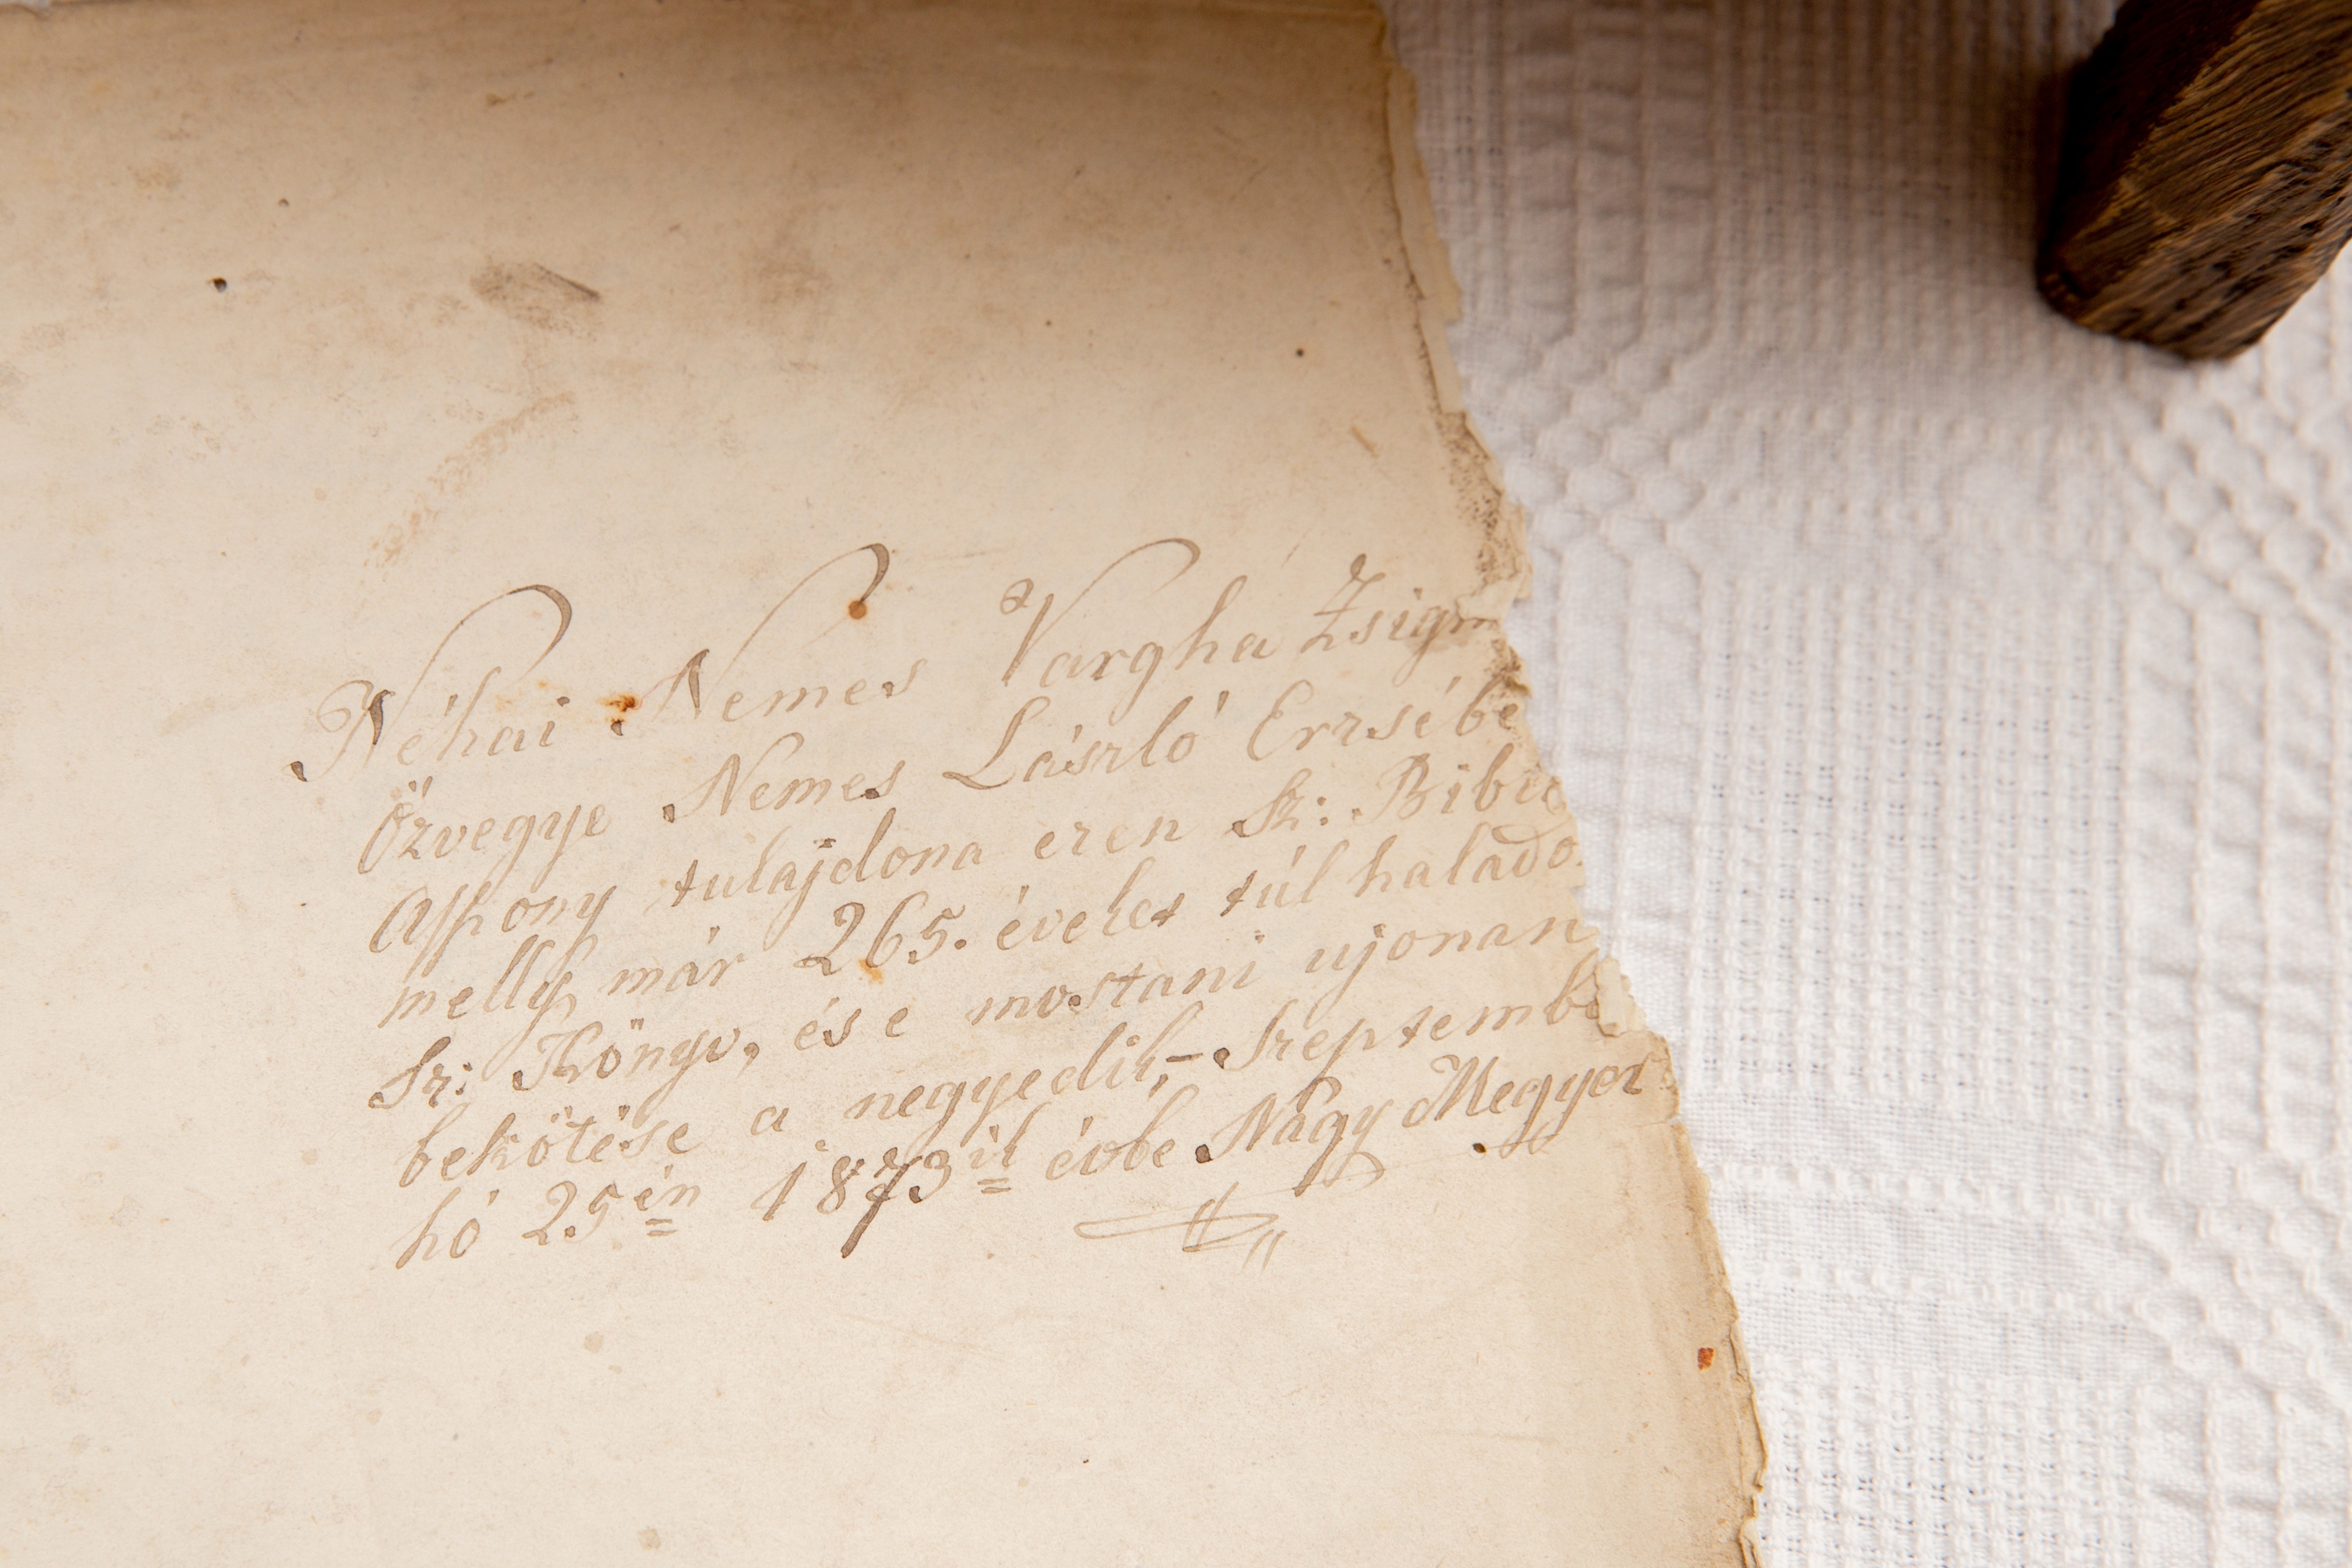 Néhai Nemes Vargha Zsigm
Özvegye Nemes László Erzsébe
Aſszony tulajdona ezen Sz: Bibli
melly már 265. éveket túl halado
Sz: Könyv, és e mostani ujonan
bekötése a negyedik,- Szeptembe
hó 25én 1873ik évbe Nagy Megyer